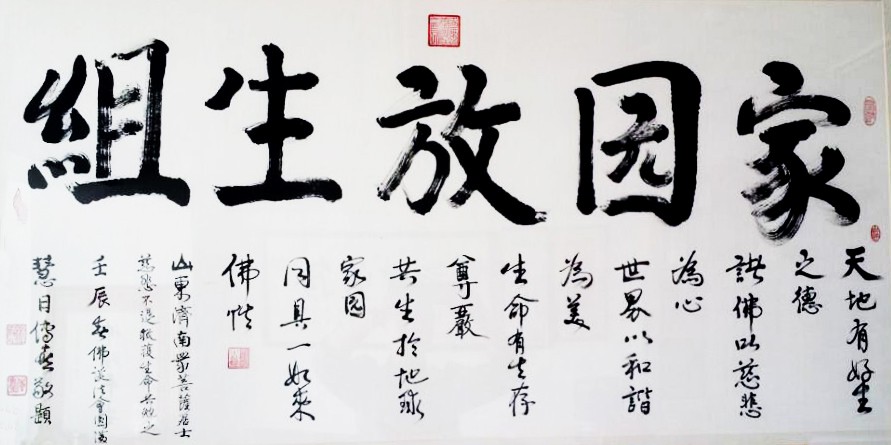 家园放生組
天地有好生
之德
諸佛以慈悲
為心
世界以和諧
為美
生命有生存
尊嚴
共生於地球
家园
同具一如來
佛性
山東濟南眾菩薩居士
慈悲不退救護生命共勉之
壬辰 佛誕法會圓滿
慧日 敬題